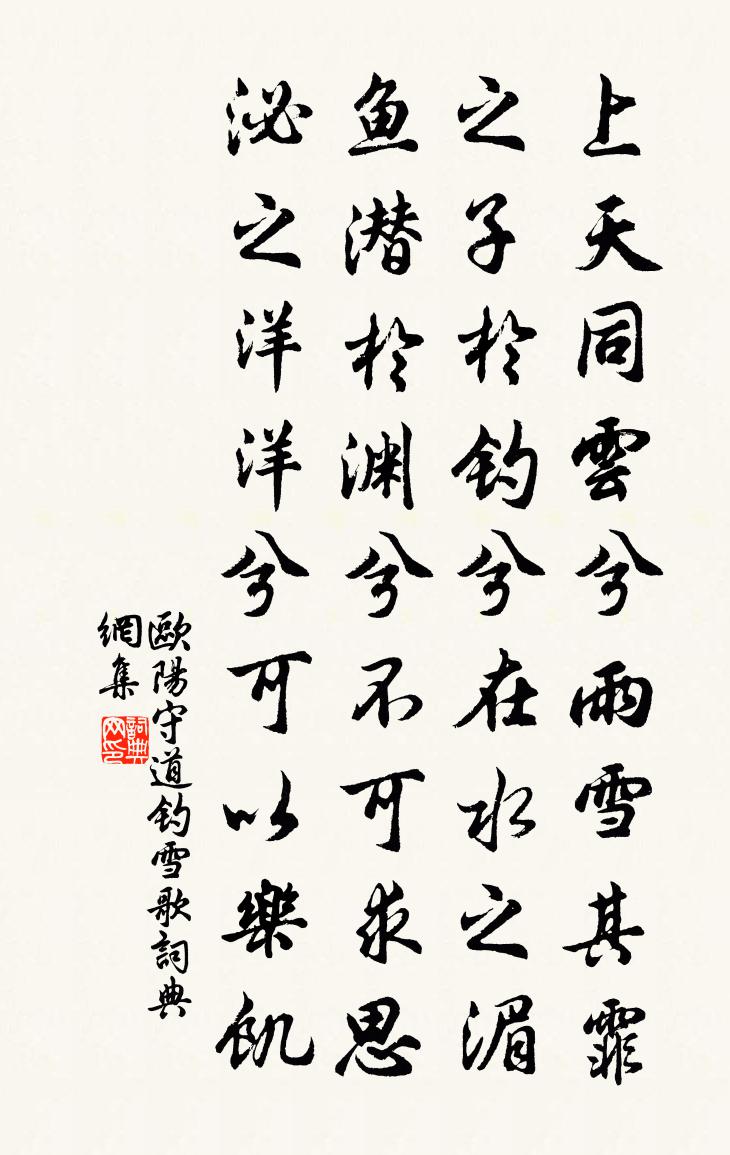 上天同雲兮雨雪其霏
之子於钓兮在水之湄
魚潜於渊兮不可求思
泌之洋洋兮可以樂飢
歐陽守道钓雪歌詞典
網集
詞典
网印